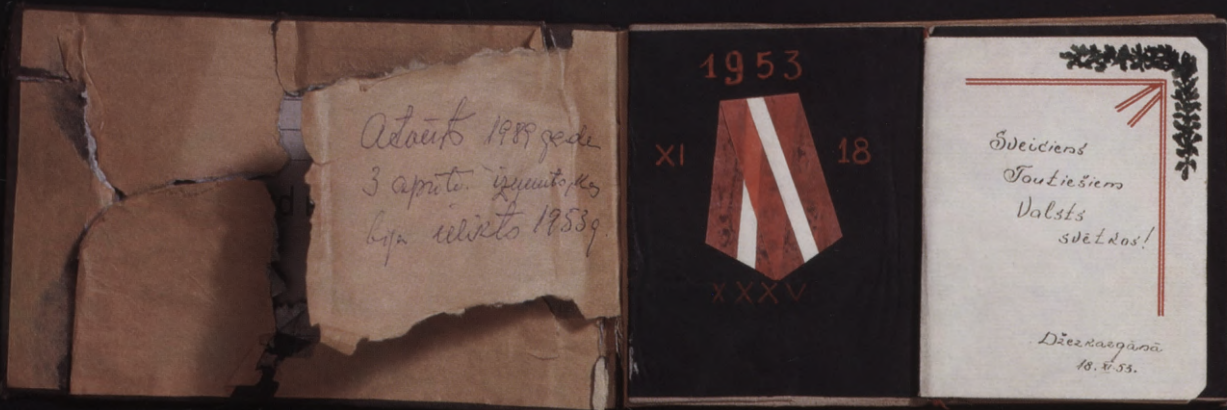 Atvērts 1989 gada
3 aprīlī. izņemts, kas
bija ielikts 1953 g.
1953
XI 18
XXXV
Sveiciens
Tautiešiem
Valsts
svētkos!
Džezkazgānā
18. XI 53.